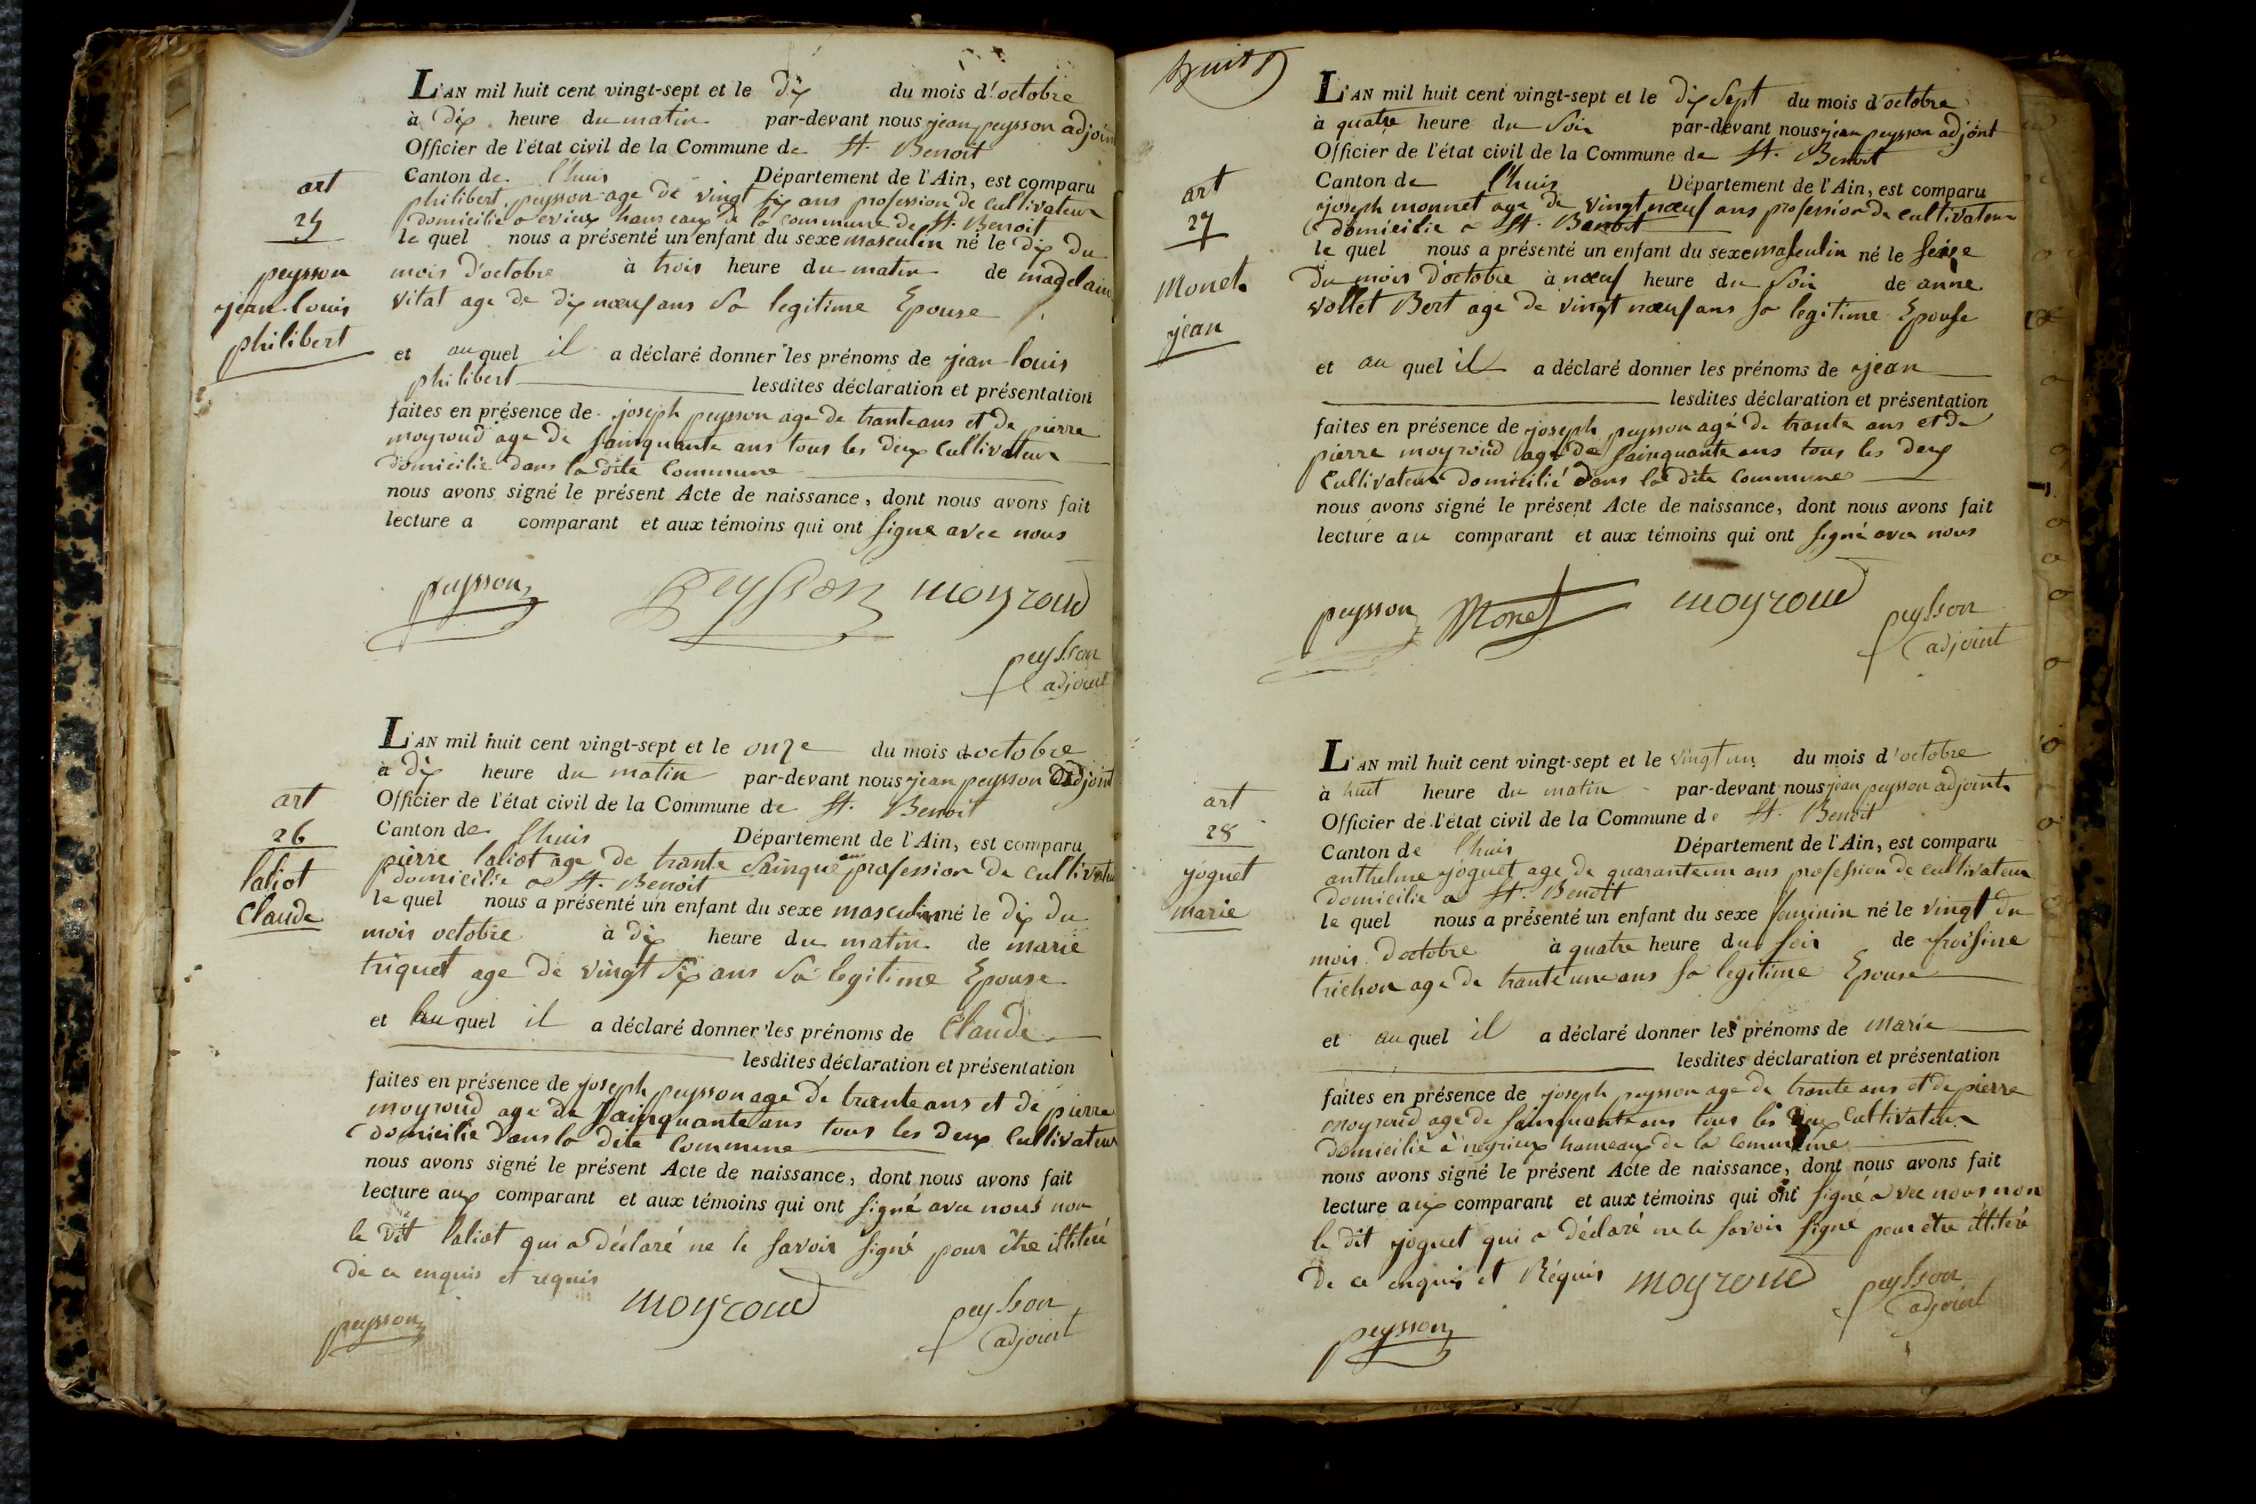 L'AN mil huit cent vingt-sept et le dix du mois d'octobre
à dix heure du matin par-devant nous jean peysson adjoint
Officier de l'état civil de la Commune de St. Benoit
Canton de l'huis Département de l'Ain, est comparu
philibert peysson age de vingt six ans profession de cultivateur
domicilie a evieux hameaux de la commune de St. Benoit
le quel nous a présenté un enfant du sexe masculin né le dix du
mois d'octobre à trois heure du matin de magdelaine
vitat age de dix nœuf ans Sa legitime Epouse
et auquel il a déclaré donner les prénoms de jean louis
philibert lesdites déclaration et présentation
faites en présence de joseph peysson age de trante ans et de pierre
moyroud age de sainquante ans tous les deux Cultivateur
domicilie dans la dite Commune
nous avons signé le présent Acte de naissance, dont nous avons fait
lecture a comparant et aux témoins qui ont signe avec nous
peysson Peysson moyroud
peysson
adjoint
art
25
peysson
jean louis
philibert
L'AN mil huit cent vingt-sept et le onze du mois d'octobre
à dix heure du matin par-devant nous jean peysson adjoint
Officier de l'état civil de la Commune de St. Benoit
Canton de l'huis Département de l'Ain, est comparu
pierre laliot age de trante sainque ans profession de cultivateur
domicilie a St. Benoit
le quel nous a présenté un enfant du sexe masculin né le dix du
mois octobre à dix heure du matin de marie
triquet age de vingt six ans Sa legitime Epouse
et au quel il a déclaré donner les prénoms de Claude
lesdites déclaration et présentation
faites en présence de joseph peysson age de trante ans et de pierre
moyroud age de sainquante ans tous les deux Cultivateur
domicilie dans la dite Commune
nous avons signé le présent Acte de naissance, dont nous avons fait
lecture aux comparant et aux témoins qui ont signé avec nous non
le dit laliot qui a déclaré ne le savoir signé pour être illiteré
de ce enquis et requis
peysson moyroud peysson
adjoint
art
26
laliot
Claude
L'AN mil huit cent vingt-sept et le dix sept du mois d'octobre
à quatre heure du soir par-devant nous jean peysson adjoint
Officier de l'état civil de la Commune de St. Benoit
Canton de l'huis Département de l'Ain, est comparu
joseph monnet age de vingt nœuf ans profession de cultivateur
domicilie a St. Benoit
le quel nous a présenté un enfant du sexe masculin né le seize
du mois d'octobre à nœuf heure du soir de anne
vollet Bert age de vingt nœuf ans sa legitime Epouse
et au quel il a déclaré donner les prénoms de jean
lesdites déclaration et présentation
faites en présence de joseph peysson agé de trante ans et de
pierre moyroud age de sainquante ans tous les deux
Cultivateur domicilié dans la dite Commune
nous avons signé le présent Acte de naissance, dont nous avons fait
lecture au comparant et aux témoins qui ont signé avec nous
peysson Monet moyroud peysson
adjoint
art
27
Monet
jean
L'AN mil huit cent vingt-sept et le vingt un du mois d'octobre
à huit heure du matin par-devant nous jean peysson adjoint
Officier de l'état civil de la Commune de St. Benoit
Canton de l'huis Département de l'Ain, est comparu
anthelme joguet age de quarante un ans profession de cultivateur
domicilie a St. Benoit
le quel nous a présenté un enfant du sexe feminin né le vingt du
mois d'octobre à quatre heure du soir de froisine
trichon age de trante une ans sa legitime Epouse
et au quel il a déclaré donner les prénoms de marie
lesdites déclaration et présentation
faites en présence de joseph peysson age de trante ans et de pierre
moyroud age de sainquante ans tous les deux Cultivateur
domicilié à negrieux hameaux de la Commune
nous avons signé le présent Acte de naissance, dont nous avons fait
lecture aux comparant et aux témoins qui ont signé avec nous non
le dit joguet qui a déclaré ne le savoir signé pour être illiteré
de ce enquis et Réquis moyroud peysson
adjoint
peysson
art
28
joguet
marie